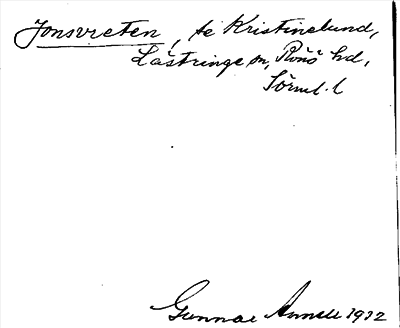 Jonsvreten, te Kristinelund,
Lästringe sn, Rönö hd,
Sörml. l
Gunnar Annell 1912